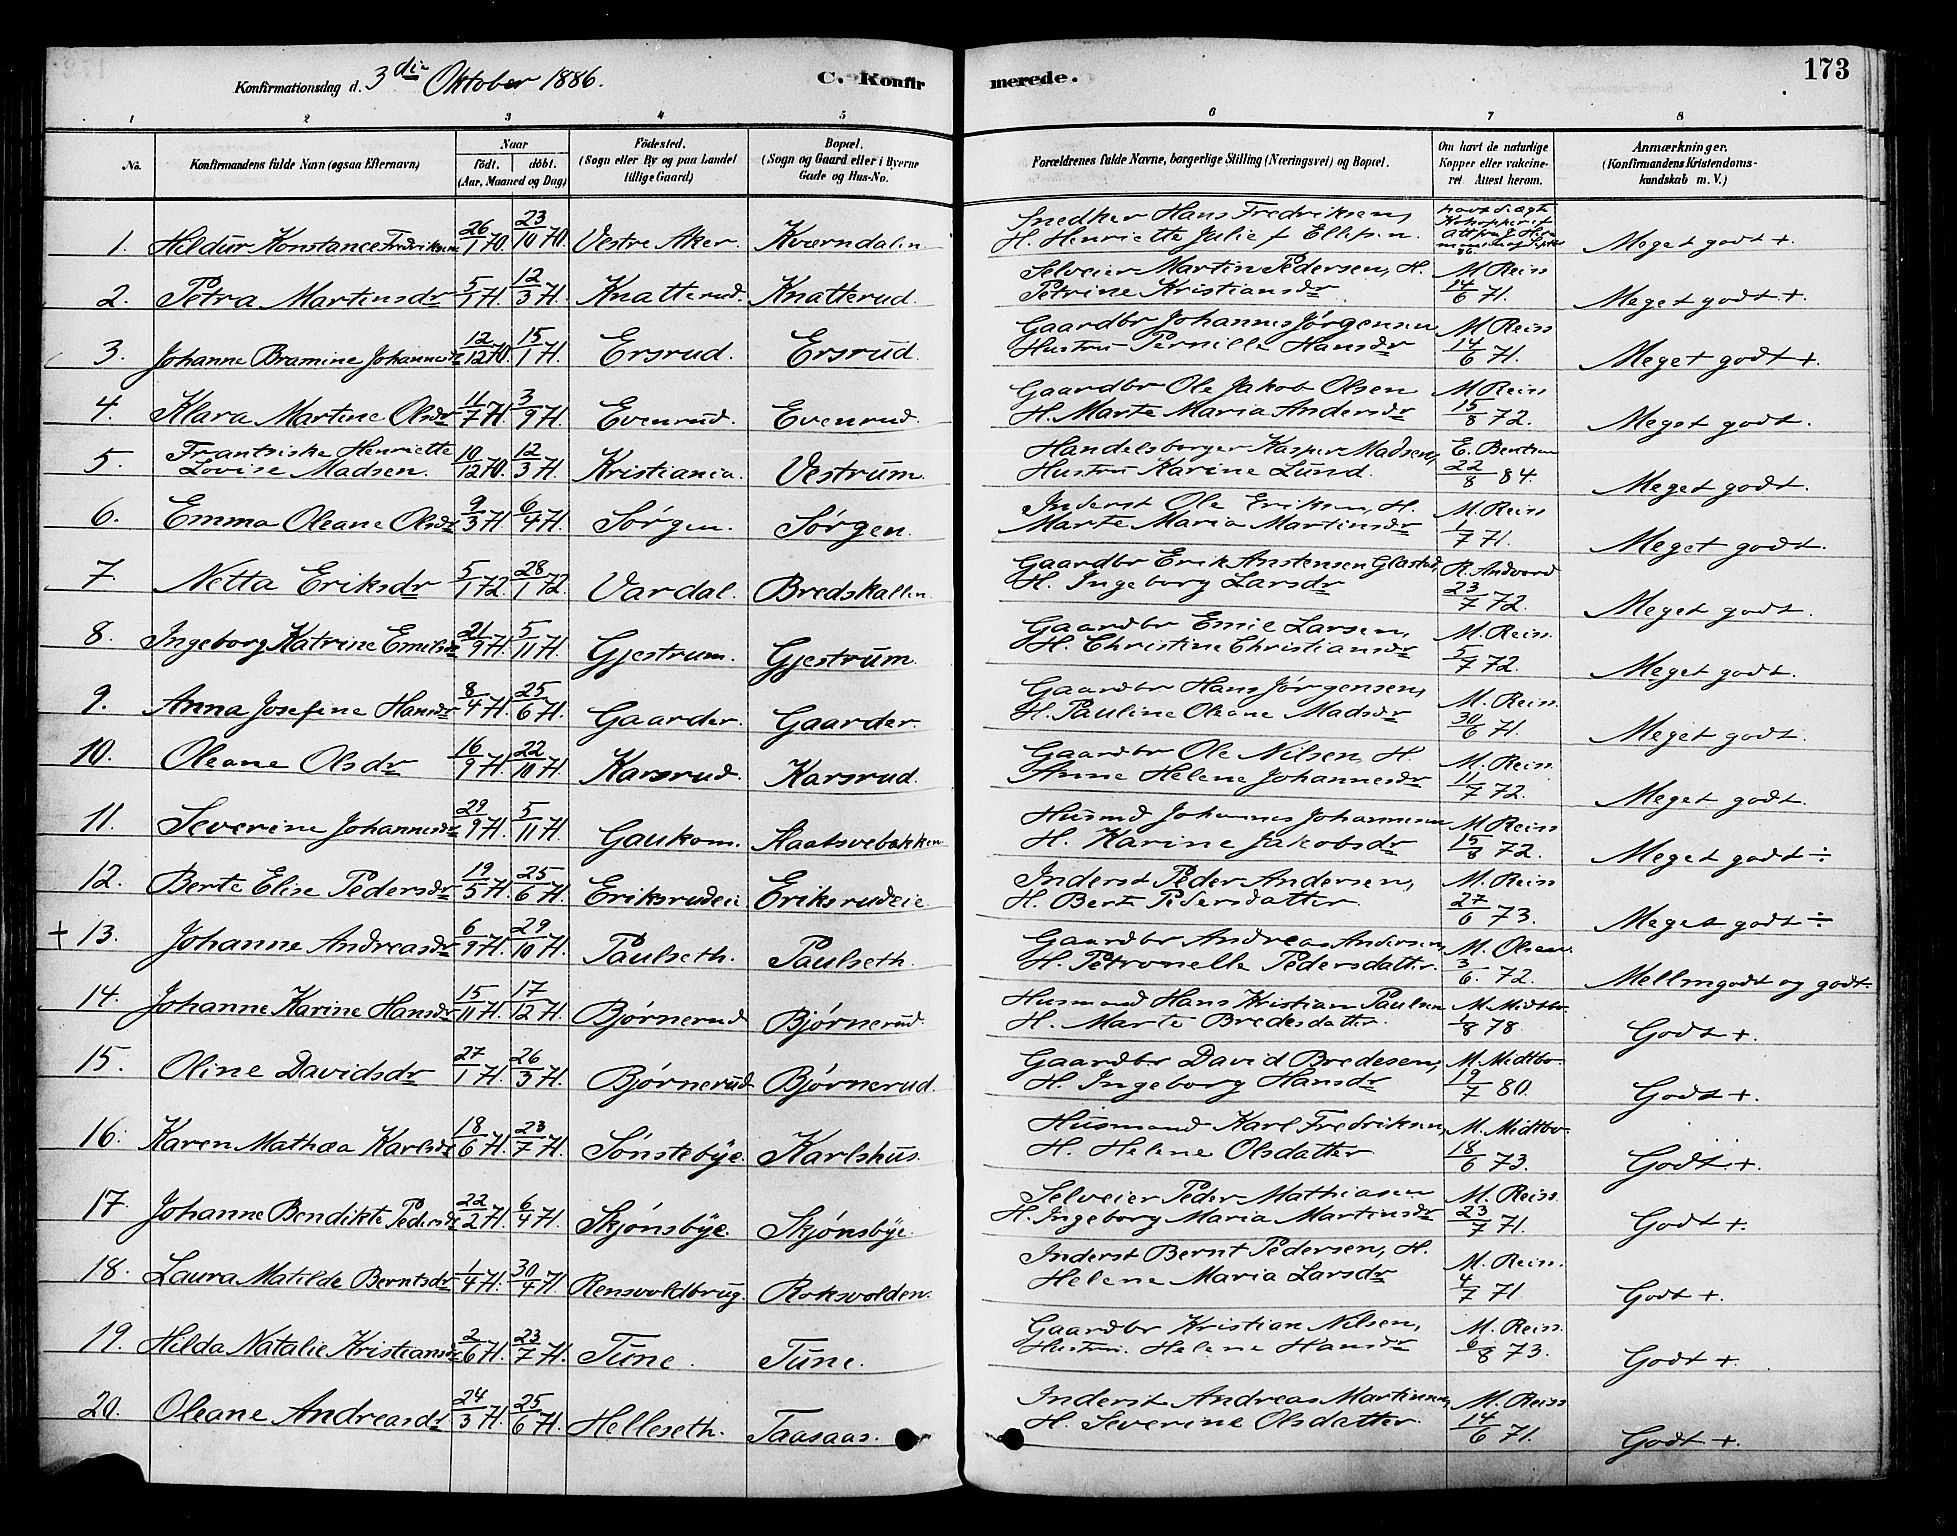 173
Konfirmationsdag d. 3die Oktober 1886.
C. Konfirmerede.
1 2 3 4 5 6 7 8
No.
Konfirmandens fulde Navn (ogsaa Efternavn)
Naar
födt. döbt.
(Aar, Maaned og Dag)
Födested.
(Sogn eller By og paa Landet tillige Gaard)
Bopæl.
(Sogn og Gaard eller i Byerne Gade og Hus-No.
Forældrenes fulde Navne, borgerlige Stilling (Næringsvei) og Bopæl.
Om havt de naturlige Kopper eller vakcineret. Attest herom.
Anmærkninger.
(Konfirmandens Kristendomskundskab m. V.)
1. Hildur Konstance Fredriksen 26/1 70. 23/10 70. Vestre Aker. Kværndalen. Snedker Hans Fredriksen, H. Henriette Julie f. Ellefsen. Meget godt +.
2. Petra Martinsdr 5/1 71. 12/3 71. Knatterud. Knatterud. Selveier Martin Pedersen, H. Petrine Kristiansdr M. Reiss 14/6 71. Meget godt +.
3. Johanne Bramine Johannesdr 12/12 70. 15/1 71. Ersrud. Ersrud. Gaardbr Johannes Jørgensen Hustru Pernille Hansdr M. Reiss 14/6 71. Meget godt +.
4. Klara Martine Olsdr 11/7 71. 3/9 71. Evenrud. Evenrud. Gaardbr Ole Jakob Olsen H. Marte Maria Andersdr M. Reiss 15/8 72. Meget godt.
5. Frantsiske Henriette Lovise Madsen. 10/12 70. 12/3 71. Kristiania. Vestrum. Handelsborger Kasper Madsen, Hustru Karine Lund. E. Bentsen 22/8 84. Meget godt.
6. Emma Oleane Olsdr 9/3 71 6/4 71. Sørgen. Sørgen. Inderst Ole Eriksen, H. Marte Maria Martinsdr M. Reiss 1/7 71. Meget godt.
7. Netta Eriksdr 5/1 72. 28/1 72. Vardal. Bredskallen. Gaardbr Erik Anstensen Glæstad, H. Ingeborg Larsdr R. Andvord 23/7 72. Meget godt.
8. Ingeborg Katrine Emilsdr 21/9 71. 5/11 71. Gjestrum. Gjestrum. Gaardbr Emil Larsen, H. Christine Christiansdr M. Reiss. 5/7 72. Meget godt.
9. Anna Josefine Hansdr 8/4 71. 25/6 71. Gaarder. Gaarder. Gaardbr Hans Jørgensen, H. Pauline Oleane Madsdr M. Reiss. 30/6 71. Meget godt.
10. Oleane Olsdr 16/9 71. 22/10 71. Karsrud. Karsrud. Gaardbr Ole Nilsen, H. Anne Helene Johannesdr M. Reiss. 11/7 72. Meget godt.
11. Severine Johannesdr 29/9 71. 5/11 71. Gaukom. Kaatsvebakken Husmd Johannes Johannesen H. Karine Jakobsdr M. Reiss 15/8 72. Meget godt ÷
12. Berte Elise Pedersdr 19/5 71. 25/6 71. Eriksrudeie. Eriksrudeie. Inderst Peder Andersen, H. Berte Pedersdatter. M. Reiss 27/6 73. Meget godt ÷
+ 13. Johanne Andreasdr 6/9 71. 29/10 71. Paulseth. Paulseth. Gaardbr Andreas Andersen, H. Petronelle Pedersdatter. M. Olsen. 3/6. 72. Mellmgodt og godt.
14. Johanne Karine Hansdr 15/11 71. 17/12 71. Bjørnerud Bjørnerud. Husmand Hans Kristian Paulsen H. Marte Bredesdatter. M. Midtbo. 1/8 78 Godt +.
15. Oline Davidsdr 27/1 71. 26/3 71. Bjørnerud. Bjørnerud. Gaardbr David Bredesen, H. Ingeborg Hansdr M. Midtbo. 19/7 80. Godt +.
16. Karen Mathea Karlsdr 18/6 71. 23/7 71. Sønstebÿe. Karlshus. Husmand Karl Fredriksen, H. Helene Olsdatter M. Midtbo. 18/6 73. Godt +.
17. Johanne Bendikte Pedersdr 22/2 71. 6/4 71. Skjønsbÿe. Skjønsbÿe. Selveier Peder Mathiasen H. Ingeborg Maria Martinsdr M. Reiss. 23/7 71. Godt +.
18. Laura Matilde Berntsdr 1/4 71. 30/4 71 Rensvoldbrug. Roksvolden. Inderst Bernt Pedersen, H. Helene Maria Larsdr M. Reiss. 4/7 71 Godt +.
19. Hilda Natalie Kristiansdr 2/6 71. 23/7 71. Tune. Tune. Gaardbr Kristian Nilsen, Hustru. Helene Hansdr M. Reiss. 6/8 73. Godt +.
20. Oleane Andreasdr 24/3 71. 25/6 71. Helleseth. Taasaas. Inderst Andreas Martinsen, H. Severine Olsdatter. M. Reiss 14/6 71. Godt +.